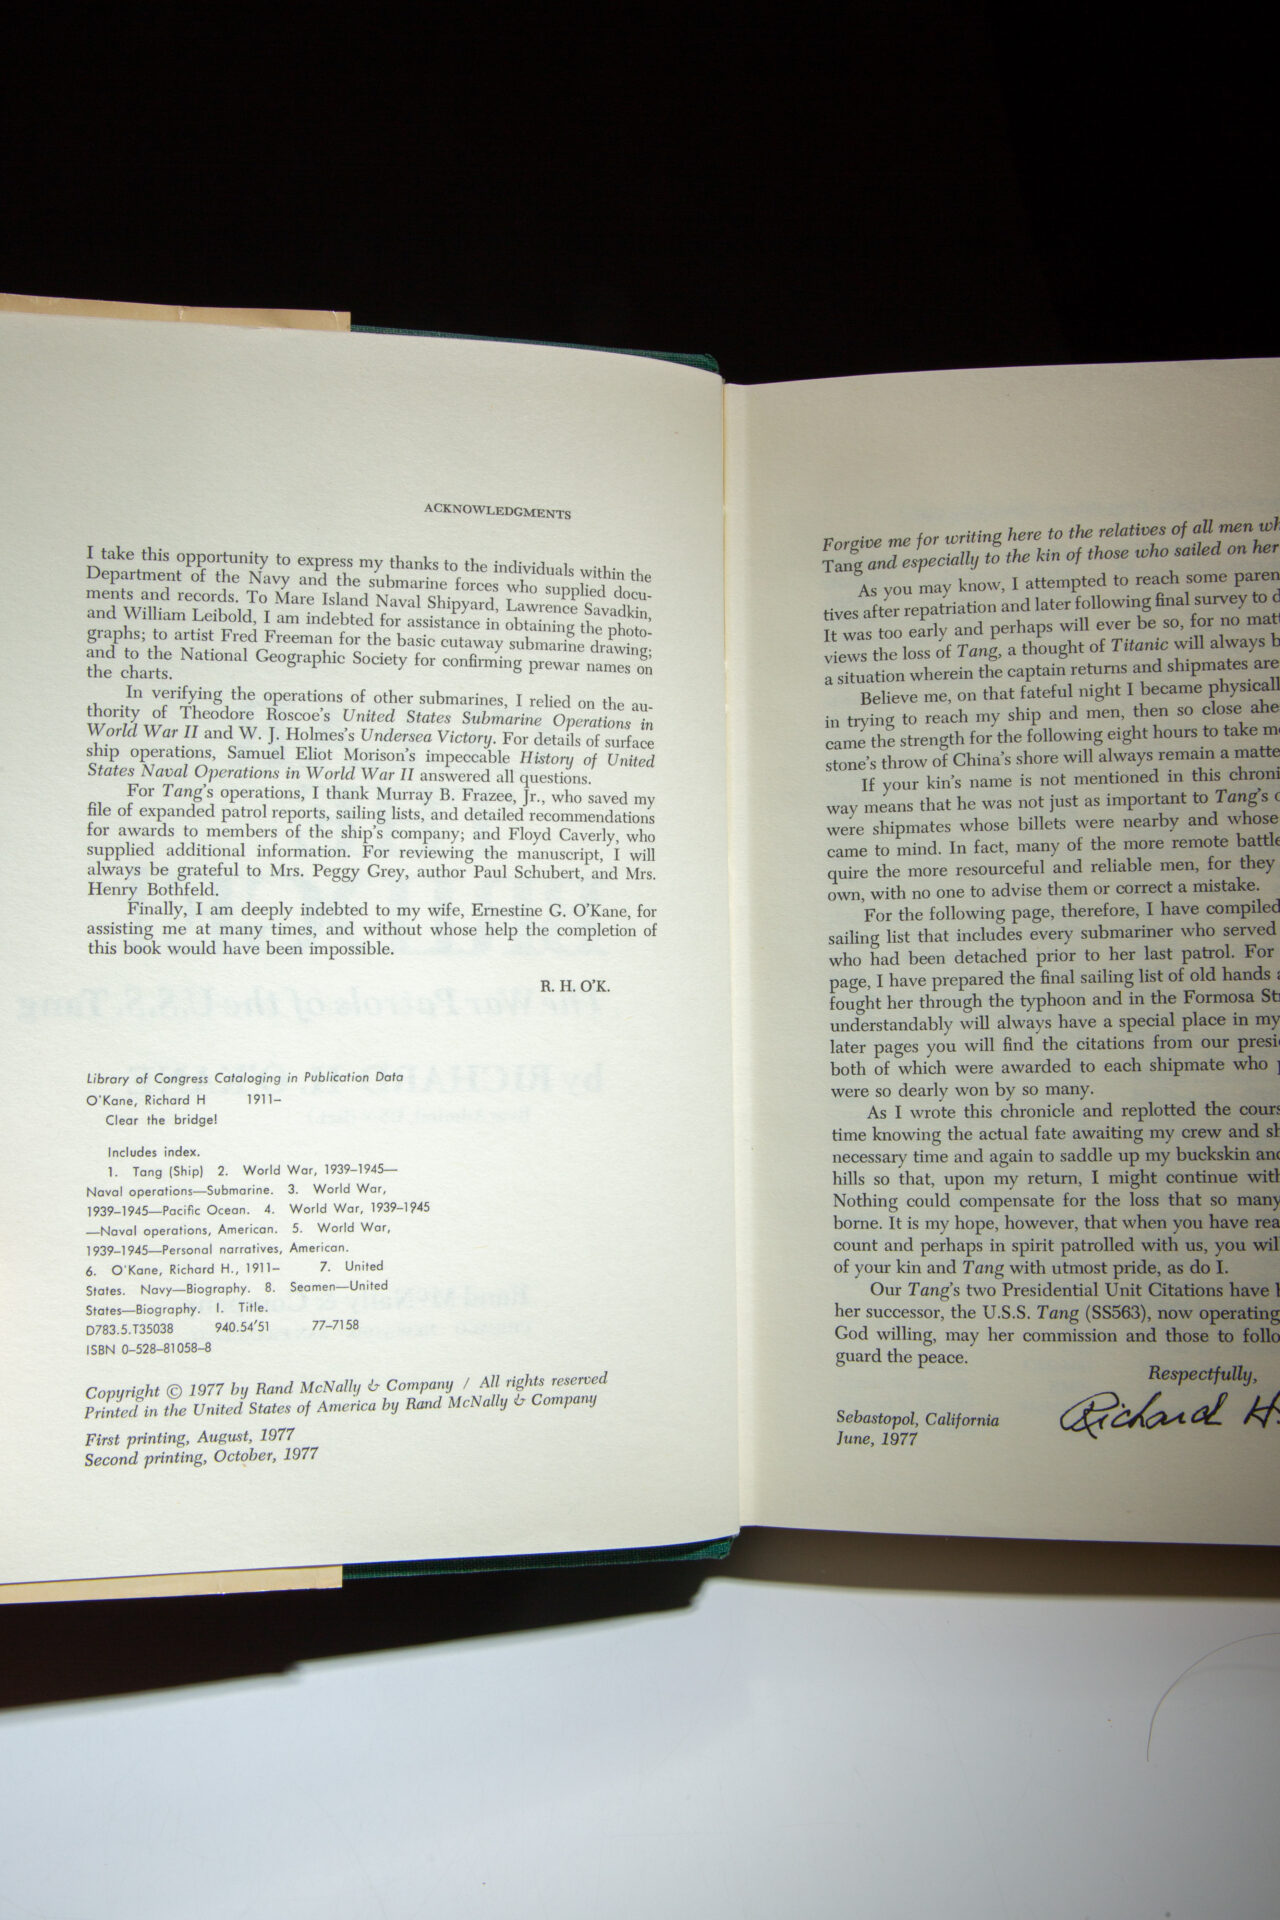 ACKNOWLEDGMENTS
I take this opportunity to express my thanks to the individuals within the
Department of the Navy and the submarine forces who supplied docu-
ments and records. To Mare Island Naval Shipyard, Lawrence Savadkin,
and William Leibold, I am indebted for assistance in obtaining the photo-
graphs; to artist Fred Freeman for the basic cutaway submarine drawing;
and to the National Geographic Society for confirming prewar names on
the charts.
In verifying the operations of other submarines, I relied on the au-
thority of Theodore Roscoe's United States Submarine Operations in
World War II and W. J. Holmes's Undersea Victory. For details of surface
ship operations, Samuel Eliot Morison's impeccable History of United
States Naval Operations in World War II answered all questions.
For Tang's operations, I thank Murray B. Frazee, Jr., who saved my
file of expanded patrol reports, sailing lists, and detailed recommendations
for awards to members of the ship's company; and Floyd Caverly, who
supplied additional information. For reviewing the manuscript, I will
always be grateful to Mrs. Peggy Grey, author Paul Schubert, and Mrs.
Henry Bothfeld.
Finally, I am deeply indebted to my wife, Ernestine G. O'Kane, for
assisting me at many times, and without whose help the completion of
this book would have been impossible.
R. H. O'K.
Library of Congress Cataloging in Publication Data
O'Kane, Richard H 1911–
Clear the bridge!
Includes index.
1. Tang (Ship) 2. World War, 1939–1945—
Naval operations—Submarine. 3. World War,
1939–1945—Pacific Ocean. 4. World War, 1939–1945
—Naval operations, American. 5. World War,
1939–1945—Personal narratives, American.
6. O'Kane, Richard H., 1911– 7. United
States. Navy—Biography. 8. Seamen—United
States—Biography. I. Title.
D783.5.T35038 940.54'51 77–7158
ISBN 0–528–81058–8
Copyright © 1977 by Rand McNally & Company / All rights reserved
Printed in the United States of America by Rand McNally & Company
First printing, August, 1977
Second printing, October, 1977
Forgive me for writing here to the relatives of all men wh
Tang and especially to the kin of those who sailed on her
As you may know, I attempted to reach some paren
tives after repatriation and later following final survey to d
It was too early and perhaps will ever be so, for no matt
views the loss of Tang, a thought of Titanic will always b
a situation wherein the captain returns and shipmates are
Believe me, on that fateful night I became physicall
in trying to reach my ship and men, then so close ahe
came the strength for the following eight hours to take m
stone's throw of China's shore will always remain a matte
If your kin's name is not mentioned in this chroni
way means that he was not just as important to Tang's
were shipmates whose billets were nearby and whose
came to mind. In fact, many of the more remote battle
quire the more resourceful and reliable men, for they
own, with no one to advise them or correct a mistake.
For the following page, therefore, I have compiled
sailing list that includes every submariner who served
who had been detached prior to her last patrol. For
page, I have prepared the final sailing list of old hands
fought her through the typhoon and in the Formosa St
understandably will always have a special place in my
later pages you will find the citations from our presi
both of which were awarded to each shipmate who
were so dearly won by so many.
As I wrote this chronicle and replotted the cours
time knowing the actual fate awaiting my crew and sh
necessary time and again to saddle up my buckskin and
hills so that, upon my return, I might continue with
Nothing could compensate for the loss that so many
borne. It is my hope, however, that when you have rea
count and perhaps in spirit patrolled with us, you wil
of your kin and Tang with utmost pride, as do I.
Our Tang's two Presidential Unit Citations have
her successor, the U.S.S. Tang (SS563), now operating
God willing, may her commission and those to follo
guard the peace.
Respectfully,
Richard H.
Sebastopol, California
June, 1977